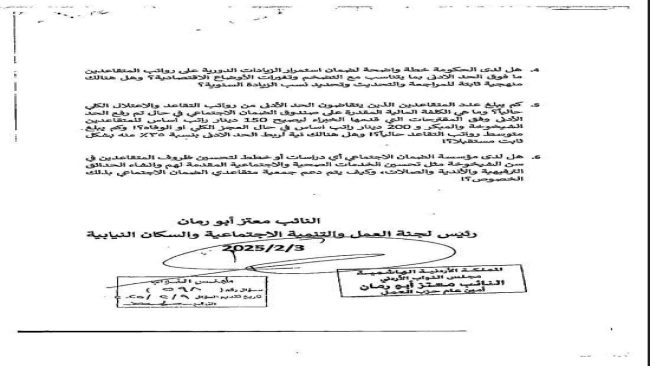 4. هل لدى الحكومة خطة واضحة لضمان استمرار الزيادات الدورية على رواتب المتقاعدين
ما فوق الحد الادنى بما يتناسب مع التضخم وتغيرات الأوضاع الاقتصادية؟ وهل هنالك
منهجية ثابتة للمراجعة والتحديث وتحديد نسب الزيادة السنوية؟
5. كم يبلغ عدد المتقاعدين الذين يتقاضون الحد الأدنى من رواتب التقاعد والاعتلال الكلي
حالياً؟ وما هي الكلفة المالية المقدرة على صندوق الضمان الاجتماعي في حال تم رفع الحد
الأدنى وفق المقترحات التي قدمها الخبراء ليصبح 150 دينار راتب اساس للمتقاعدين
الشيخوخة والمبكر و 200 دينار راتب اساس في حال العجز الكلي او الوفاة؟! وكم يبلغ
متوسط رواتب التقاعد حالياً؟! وهل هنالك نية لربط الحد الادنى بنسبة ٢٥٪ منه بشكل
ثابت مستقبلاً؟!
6. هل لدى مؤسسة الضمان الاجتماعي أي دراسات أو خطط لتحسين ظروف المتقاعدين في
سن الشيخوخة مثل تحسين الخدمات الصحية والاجتماعية المقدمة لهم وإنشاء الحدائق
الترفيهية والأندية والصالات، وكيف يتم دعم جمعية متقاعدي الضمان الاجتماعي بذلك
الخصوص؟!
النائب معتز أبو رمان
رئيس لجنة العمل والتنمية الاجتماعية والسكان النيابية
2025/2/3
المملكة الأردنية الهاشمية
مجلس النواب الأردني
النائب معتز أبو رمان
أمين عام حزب العمل
مجلس النواب
سؤال رقم ( ٥٩٨ )
تاريخ تقديم السؤال ٢٠٢٥/٢/٩